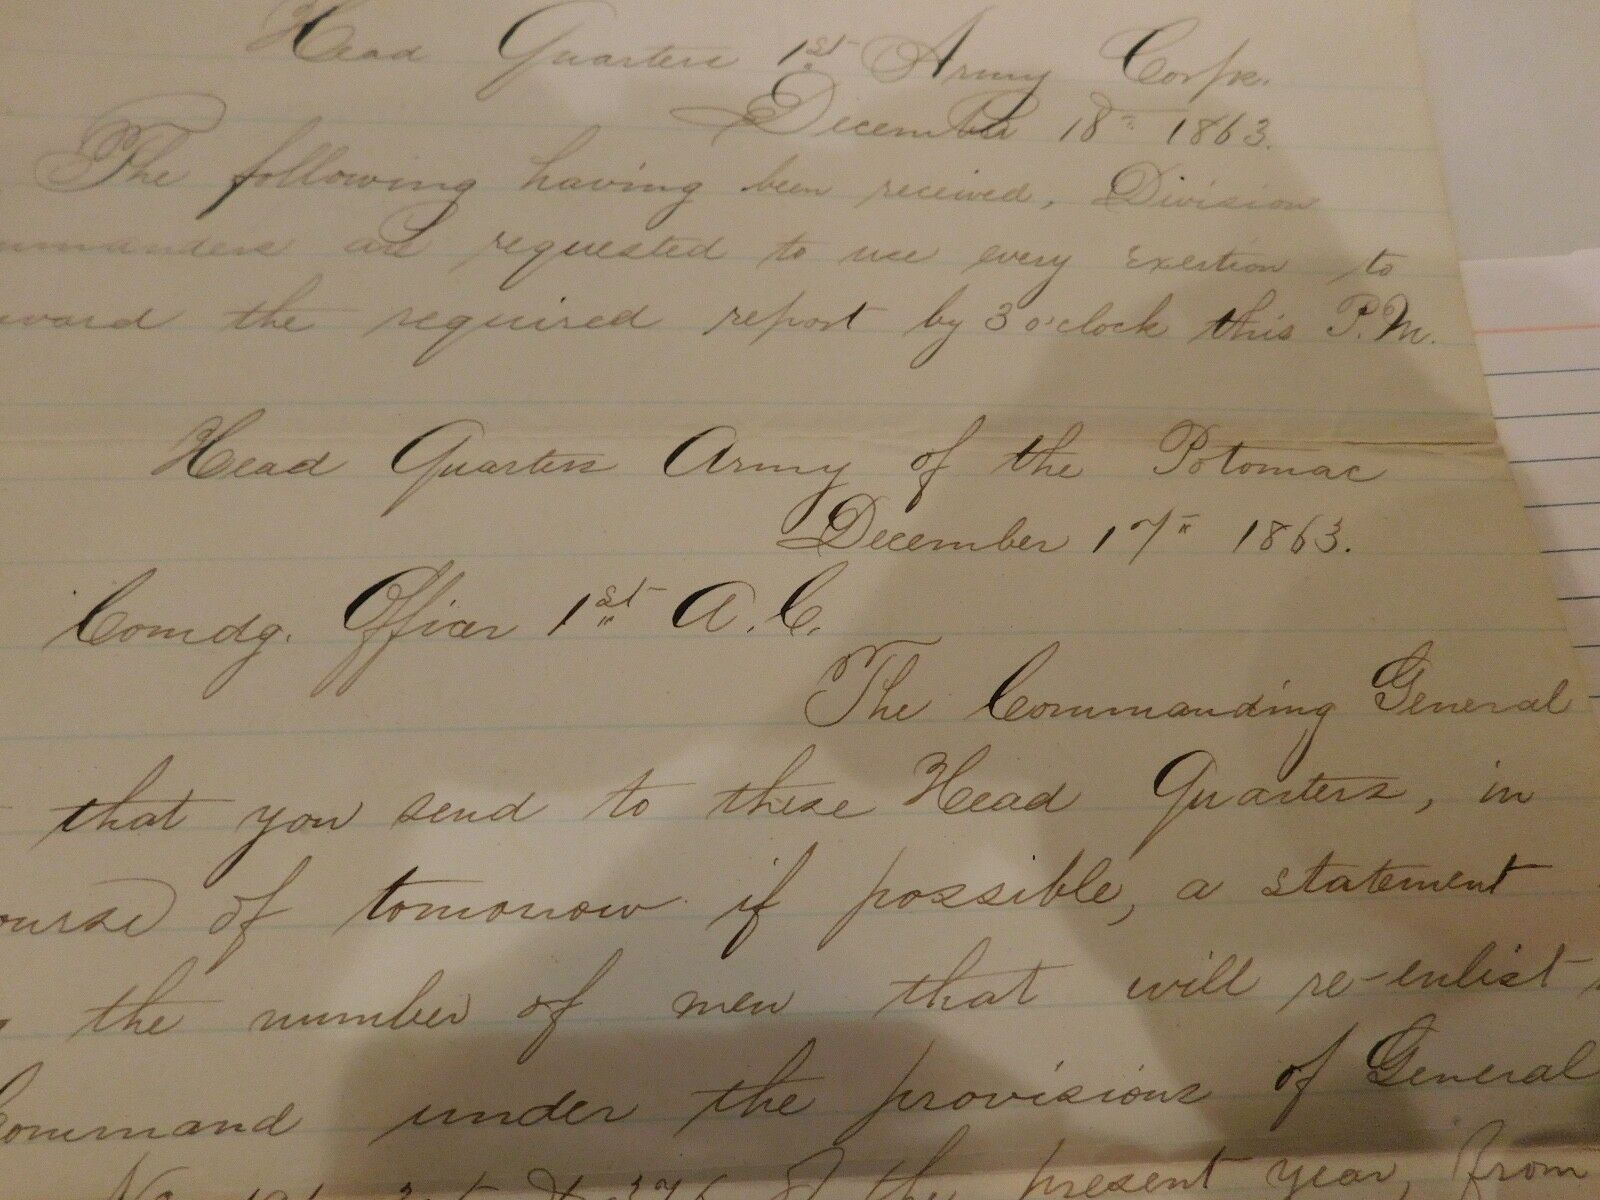 Head Quarters 1st Army Corps.
December 18th 1863.
The following having been received, Division
mmanders are requested to use every exertion to
ward the required report by 3 o'clock this P.M.
Head Quarters Army of the Potomac
December 17th 1863.
Comdg. Officer 1st A.C.
The Commanding General
that you send to these Head Quarters, in
ourse of tomorrow if possible, a statement
the number of men that will re-enlist
Command under the provisions of General
No. 191 376 of the present year, from